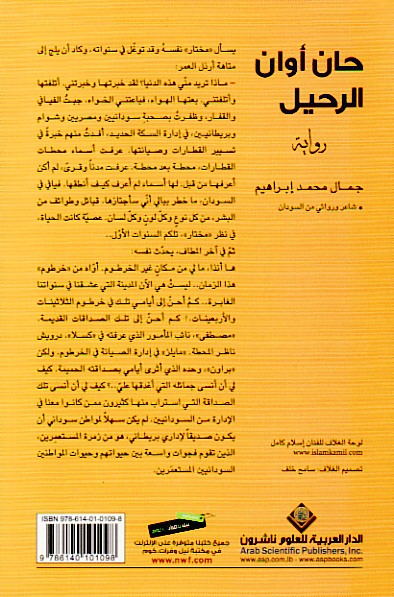 حان أوان
الرحيل
رواية
جمال محمد إبراهيم
* شاعر وروائي من السودان
يسأل «مختار» نفسهُ وقد توغّل في سنواته، وكاد أن يلج إلى
متاهة أرذل العمر:
- ماذا تريد منّي هذه الدنيا؟ لقد خبرتها وخبرتني. أتلفتها
وأتلفتني. بعتها الهواء، فباعتني الخواء. جبتُ الفيافي
والقفار، وظفرتُ بصحبة سودانيين ومصريين وشوام
وبريطانيين، في إدارة السكة الحديد، أفدتُ منهم خبرةً في
تسيير القطارات وصيانتها. عرفت أسماء محطات
القطارات، محطة بعد محطة. عرفت مدناً وقرىً، لم أكن
أعرفها من قبل. لها أسماء لم أعرف كيف أنطقها. فيافي في
السودان، ما خطر ببالي أنّي سأجتازها. قبائل وطوائف من
البشر، من كل نوعٍ وكلّ لونٍ وكلّ لسان. عصيّة كانت الحياة،
في نظر «مختار»، تلكم السنوات الأوّل..
ثمّ في آخر المطاف، يحدّث نفسه:
ها أنذا، ما لي من مكانٍ غير الخرطوم. أراه من «خرطوم»
هذا الزمان.. ليستْ هي الآن المدينة التي عشقنا في سنواتنا
الغابرة.. كمْ أحنّ إلى أيامي تلك في خرطوم الثلاثينات
والأربعينات.! كم أحنّ إلى تلك الصداقات القديمة.
«مصطفى»، نائب المأمور الذي عرفته في «كسلا». درويش
ناظر المحطة. «مايلز» في إدارة الصيانة في الخرطوم. ولكن
«براون»، وحده الذي أثرى أيامي بصداقته الحميمة. كيف
لي أن أنسى جمائله التي أغدقها عليّ..؟ كيف لي أن أنسى تلك
الصداقة التي استراب منها كثيرون ممن كانوا معنا في
الإدارة من السودانيين. لم يكن سهلاً لمواطن سوداني أن
يكون صديقاً لإداري بريطاني، هو من زمرة المستعمِرين،
الذين تقوم فجوات واسعة بين حيواتهم وحيوات المواطنين
السودانيين المستعمَرين.
لوحة الغلاف للفنان إسلام كامل
www.islamkamil.com
تصميم الغلاف: سامح خلف
ISBN 978-614-01-0109-8
9 786140 101098
جميع كتبنا متوفرة على الإنترنت
في مكتبة نيل وفرات.كوم
www.nwf.com
الدار العربية للعلوم ناشرون
Arab Scientific Publishers, Inc.
www.asp.com.lb - www.aspbooks.com